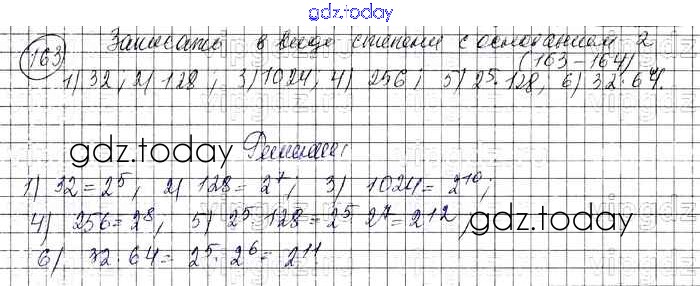 gdz.today
163) Записать в виде степени с основанием 2
(163-164)
1) 32; 2) 128; 3) 1024; 4) 256; 5) 2⁵·128; 6) 32·64.
gdz.today Решение:
1) 32 = 2⁵; 2) 128 = 2⁷; 3) 1024 = 2¹⁰;
4) 256 = 2⁸; 5) 2⁵·128 = 2⁵·2⁷ = 2¹²; gdz.today
6) 32·64 = 2⁵·2⁶ = 2¹¹